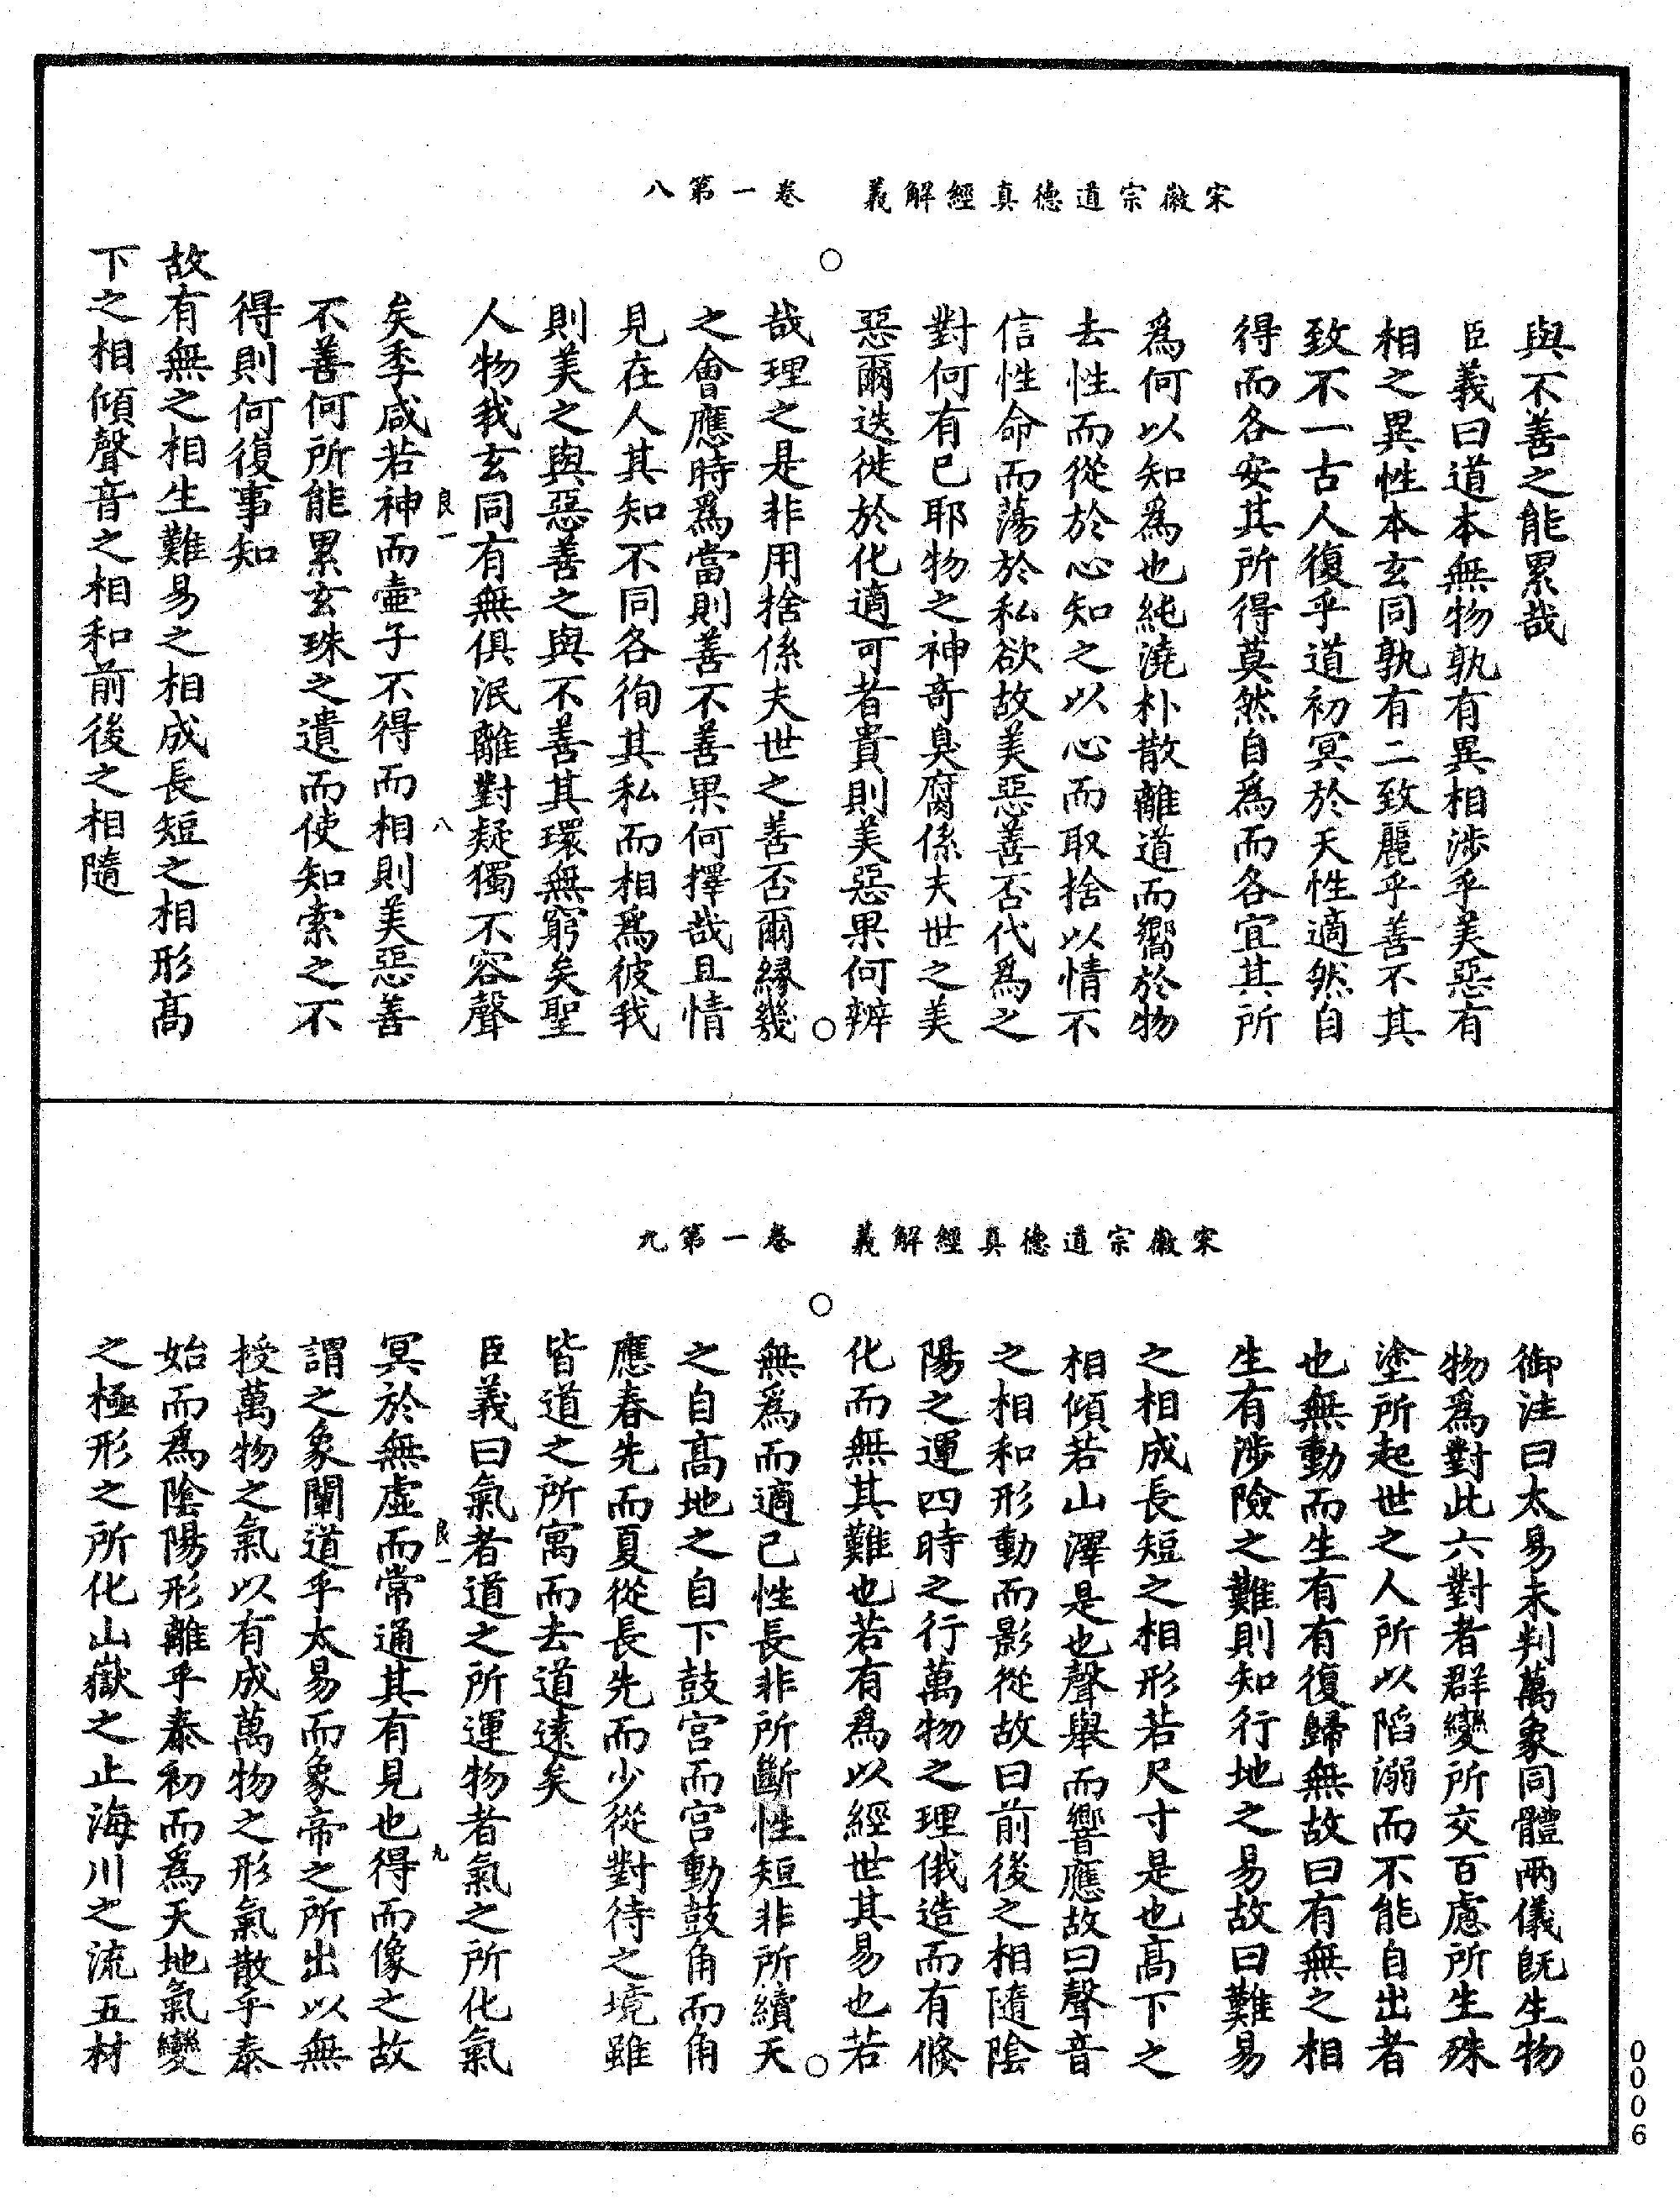 宋徽宗道德真經解義　卷一第八
與不善之能累哉
臣義曰道本無物孰有異相涉乎美惡有
相之異性本玄同孰有二致麗乎善不其
致不一古人復乎道初冥於天性適然自
得而各安其所得莫然自為而各宜其所
爲何以知爲也純澆朴散離道而嚮於物
去性而從於心知之以心而取捨以情不
信性命而蕩於私欲故美惡善否代爲之
對何有已耶物之神奇臭腐係夫世之美
惡爾迭徙於化適可者貴則美惡果何辨
哉理之是非用捨係夫世之善否爾緣幾
之會應時爲當則善不善果何擇哉且情
見在人其知不同各徇其私而相爲彼我
則美之與惡善之與不善其環無窮矣聖
人物我玄同有無俱泯離對疑獨不容聲
矣季咸若神而壷子不得而相則美惡善
良一　八
不善何所能累玄珠之遺而使知索之不
得則何復事知
故有無之相生難易之相成長短之相形高
下之相傾聲音之相和前後之相隨
宋徽宗道德真經解義　卷一第九
御注曰太易未判萬象同體兩儀既生物
物爲對此六對者群變所交百慮所生殊
塗所起世之人所以陷溺而不能自出者
也無動而生有有復歸無故曰有無之相
生有涉險之難則知行地之易故曰難易
之相成長短之相形若尺寸是也高下之
相傾若山澤是也聲舉而響應故曰聲音
之相和形動而影從故曰前後之相隨陰
陽之運四時之行萬物之理俄造而有倏
化而無其難也若有爲以經世其易也若
無爲而適已性長非所斷性短非所續天
之自高地之自下鼓宮而宮動鼓角而角
應春先而夏從長先而少從對待之境雖
皆道之所寓而去道遠矣
臣義曰氣者道之所運物者氣之所化氣
冥於無虛而常通其有見也得而像之故
良一　九
謂之象闡道乎太易而象帝之所出以無
授萬物之氣以有成萬物之形氣散乎泰
始而爲陰陽形離乎泰初而爲天地氣變
之極形之所化山嶽之止海川之流五材
0006